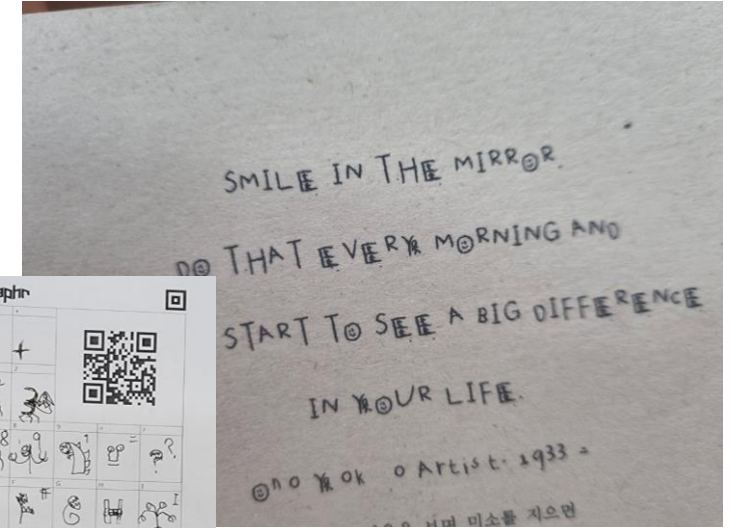 SMILE IN THE MIRROR.
DO THAT EVERY MORNING AND
START TO SEE A BIG DIFFERENCE
IN YOUR LIFE.
Ono Yok o Artist. 1933 -
미소를 지으면